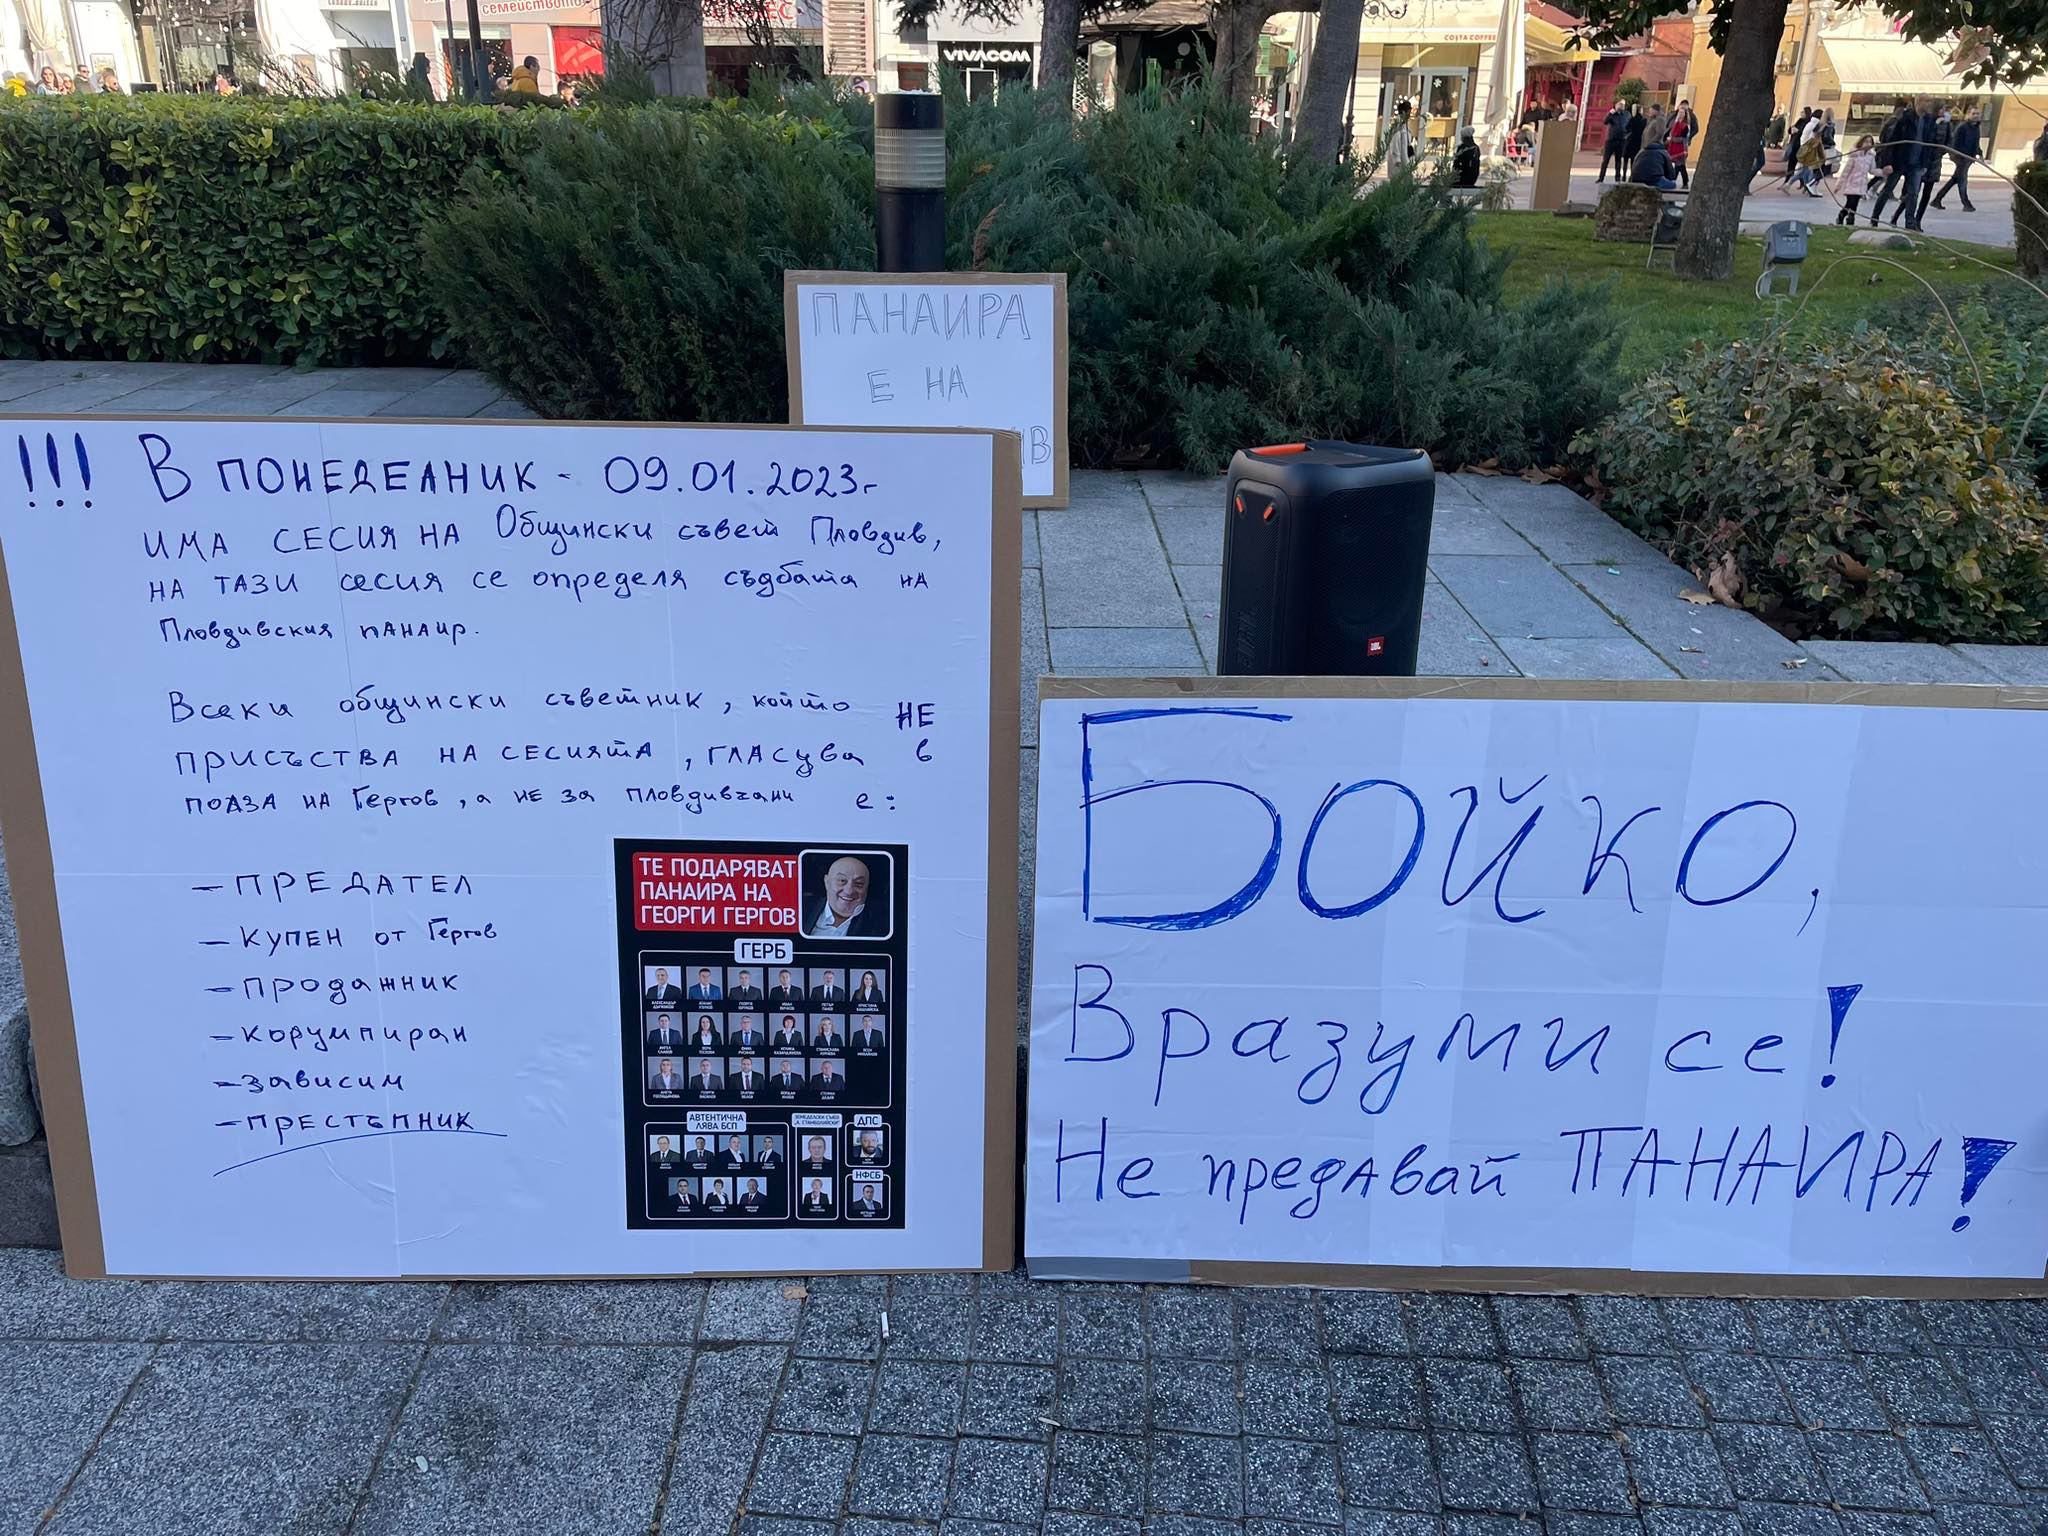 семейството
VIVACOM
COSTA COFFEE
ПАНАИРА
Е НА
ИВ
!!! В ПОНЕДЕЛНИК - 09.01.2023г
ИМА СЕСИЯ НА Общински съвет Пловдив,
НА ТАЗИ сесия се определя съдбата на
Пловдивския пАНАир.
Всеки общински съветник, който НЕ
ПРИСЪСТВА НА СЕСИЯТА, ГЛАСува в
ПОЛЗА НА Гергов, а НЕ ЗА пловдивчани е:
- ПРЕДАТЕЛ
- КУПЕН от Гергов
- продажник
- корумпиран
- зависим
- ПРЕСТЪПНИК
ТЕ ПОДАРЯВАТ
ПАНАИРА НА
ГЕОРГИ ГЕРГОВ
ГЕРБ
АВТЕНТИЧНА
ЛЯВА БСП
ЗЕМЕДЕЛСКИ СЪЮЗ
"А. СТАМБОЛИЙСКИ"
ДПС
НФСБ
JBL
БОЙКО,
Вразуми се!
Не предАвай ПАНАИРА!